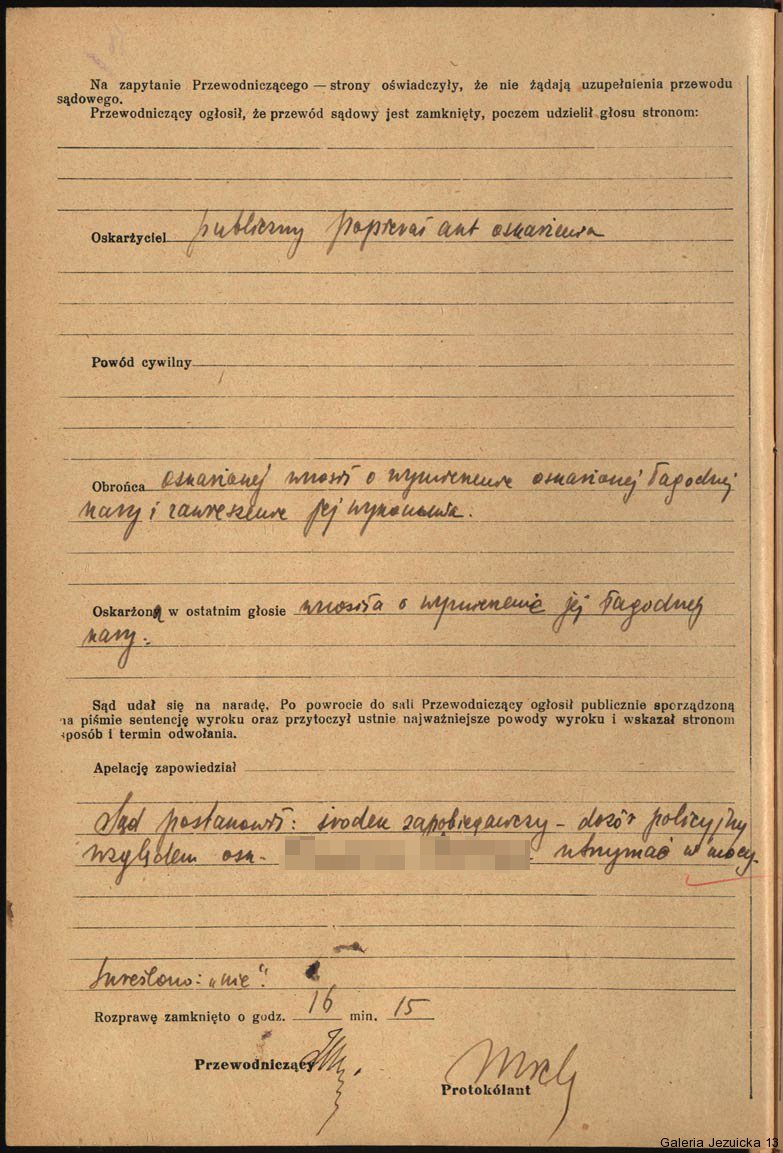 Na zapytanie Przewodniczącego — strony oświadczyły, że nie żądają uzupełnienia przewodu
sądowego.
Przewodniczący ogłosił, że przewód sądowy jest zamknięty, poczem udzielił głosu stronom:
Oskarżyciel publiczny popierał akt oskarżenia
Powód cywilny
Obrońca oskarżonej wnosił o wymierzenie oskarżonej łagodnej
kary i zawieszenie jej wykonania.
Oskarżona w ostatnim głosie wnosiła o wymierzenie jej łagodnej
kary.
Sąd udał się na naradę. Po powrocie do sali Przewodniczący ogłosił publicznie sporządzoną
na piśmie sentencję wyroku oraz przytoczył ustnie najważniejsze powody wyroku i wskazał stronom
sposób i termin odwołania.
Apelację zapowiedział
Sąd postanowił: środek zapobiegawczy – dozór policyjny
względem osk. utrzymać w mocy.
Skreślono: „nie".
Rozprawę zamknięto o godz. 16 min. 15
Przewodniczący
Protokólant
Galeria Jezuicka 13